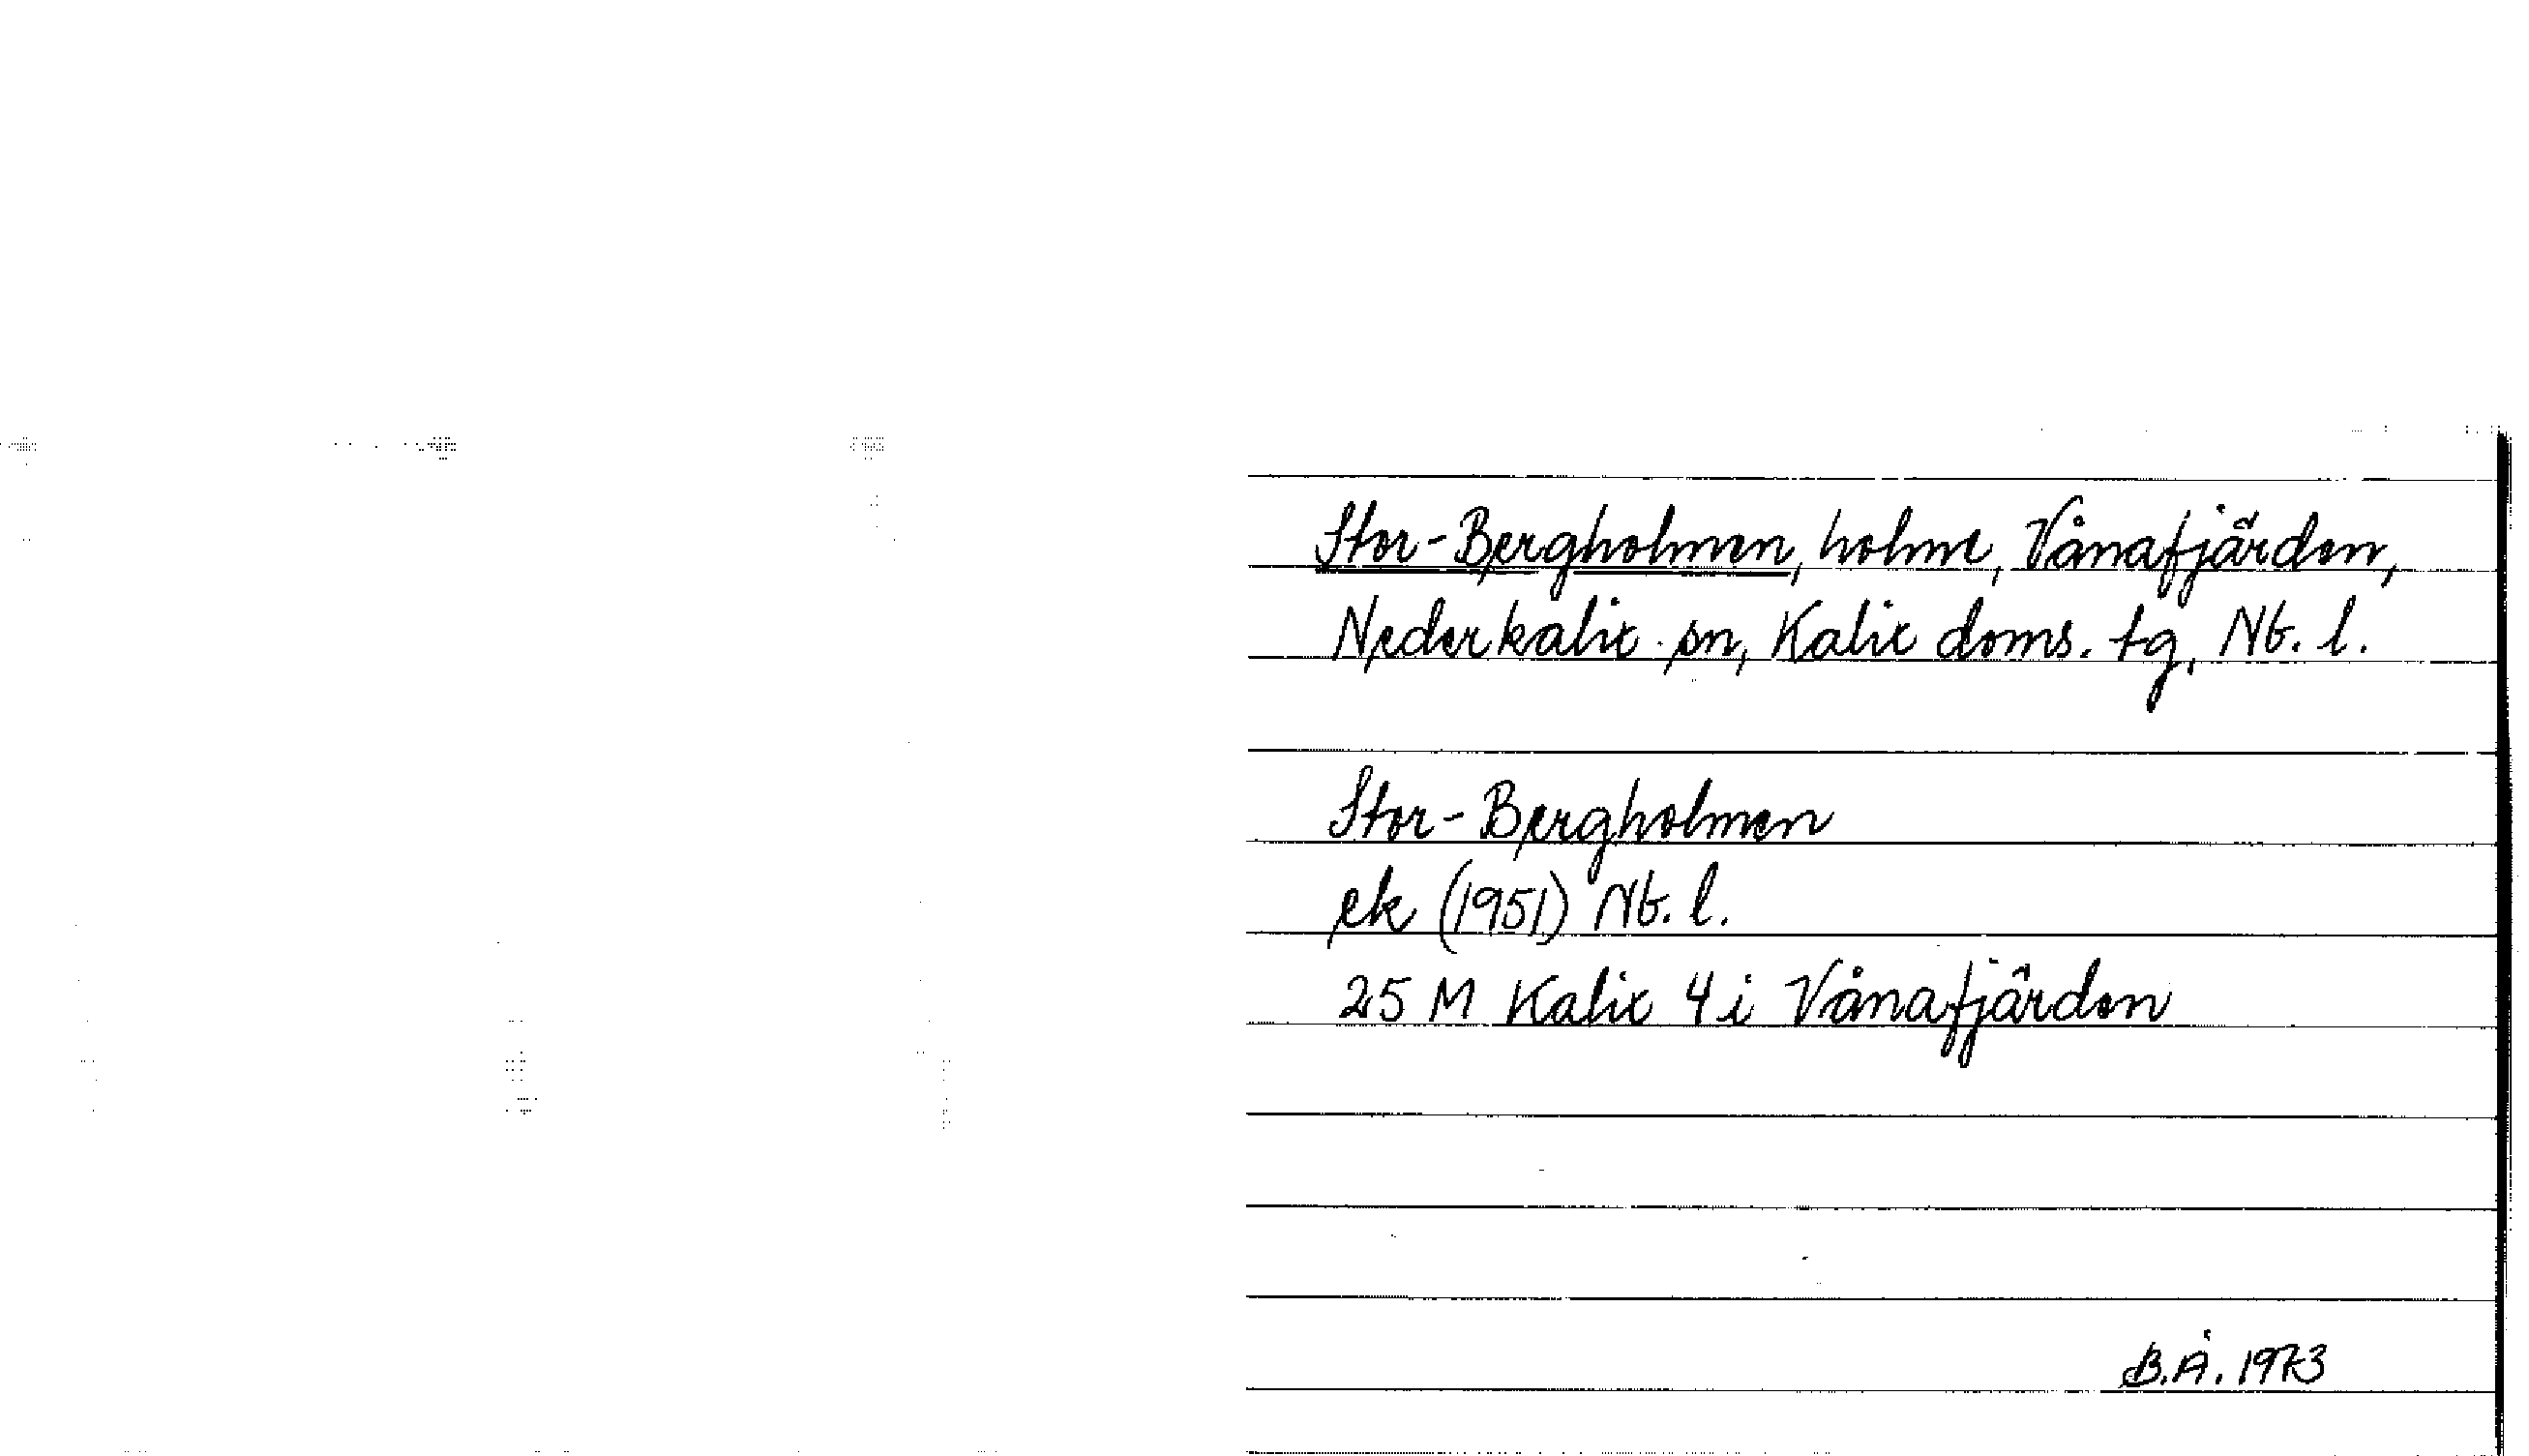 Stor-Bergholmen, holme, Vånafjärden,
Nederkalix sn, Kalix doms. tg, Nb. l.
Stor-Bergholmen
ek (1951) Nb. l.
25 M Kalix 4 i Vånafjärden
B.Å. 1973